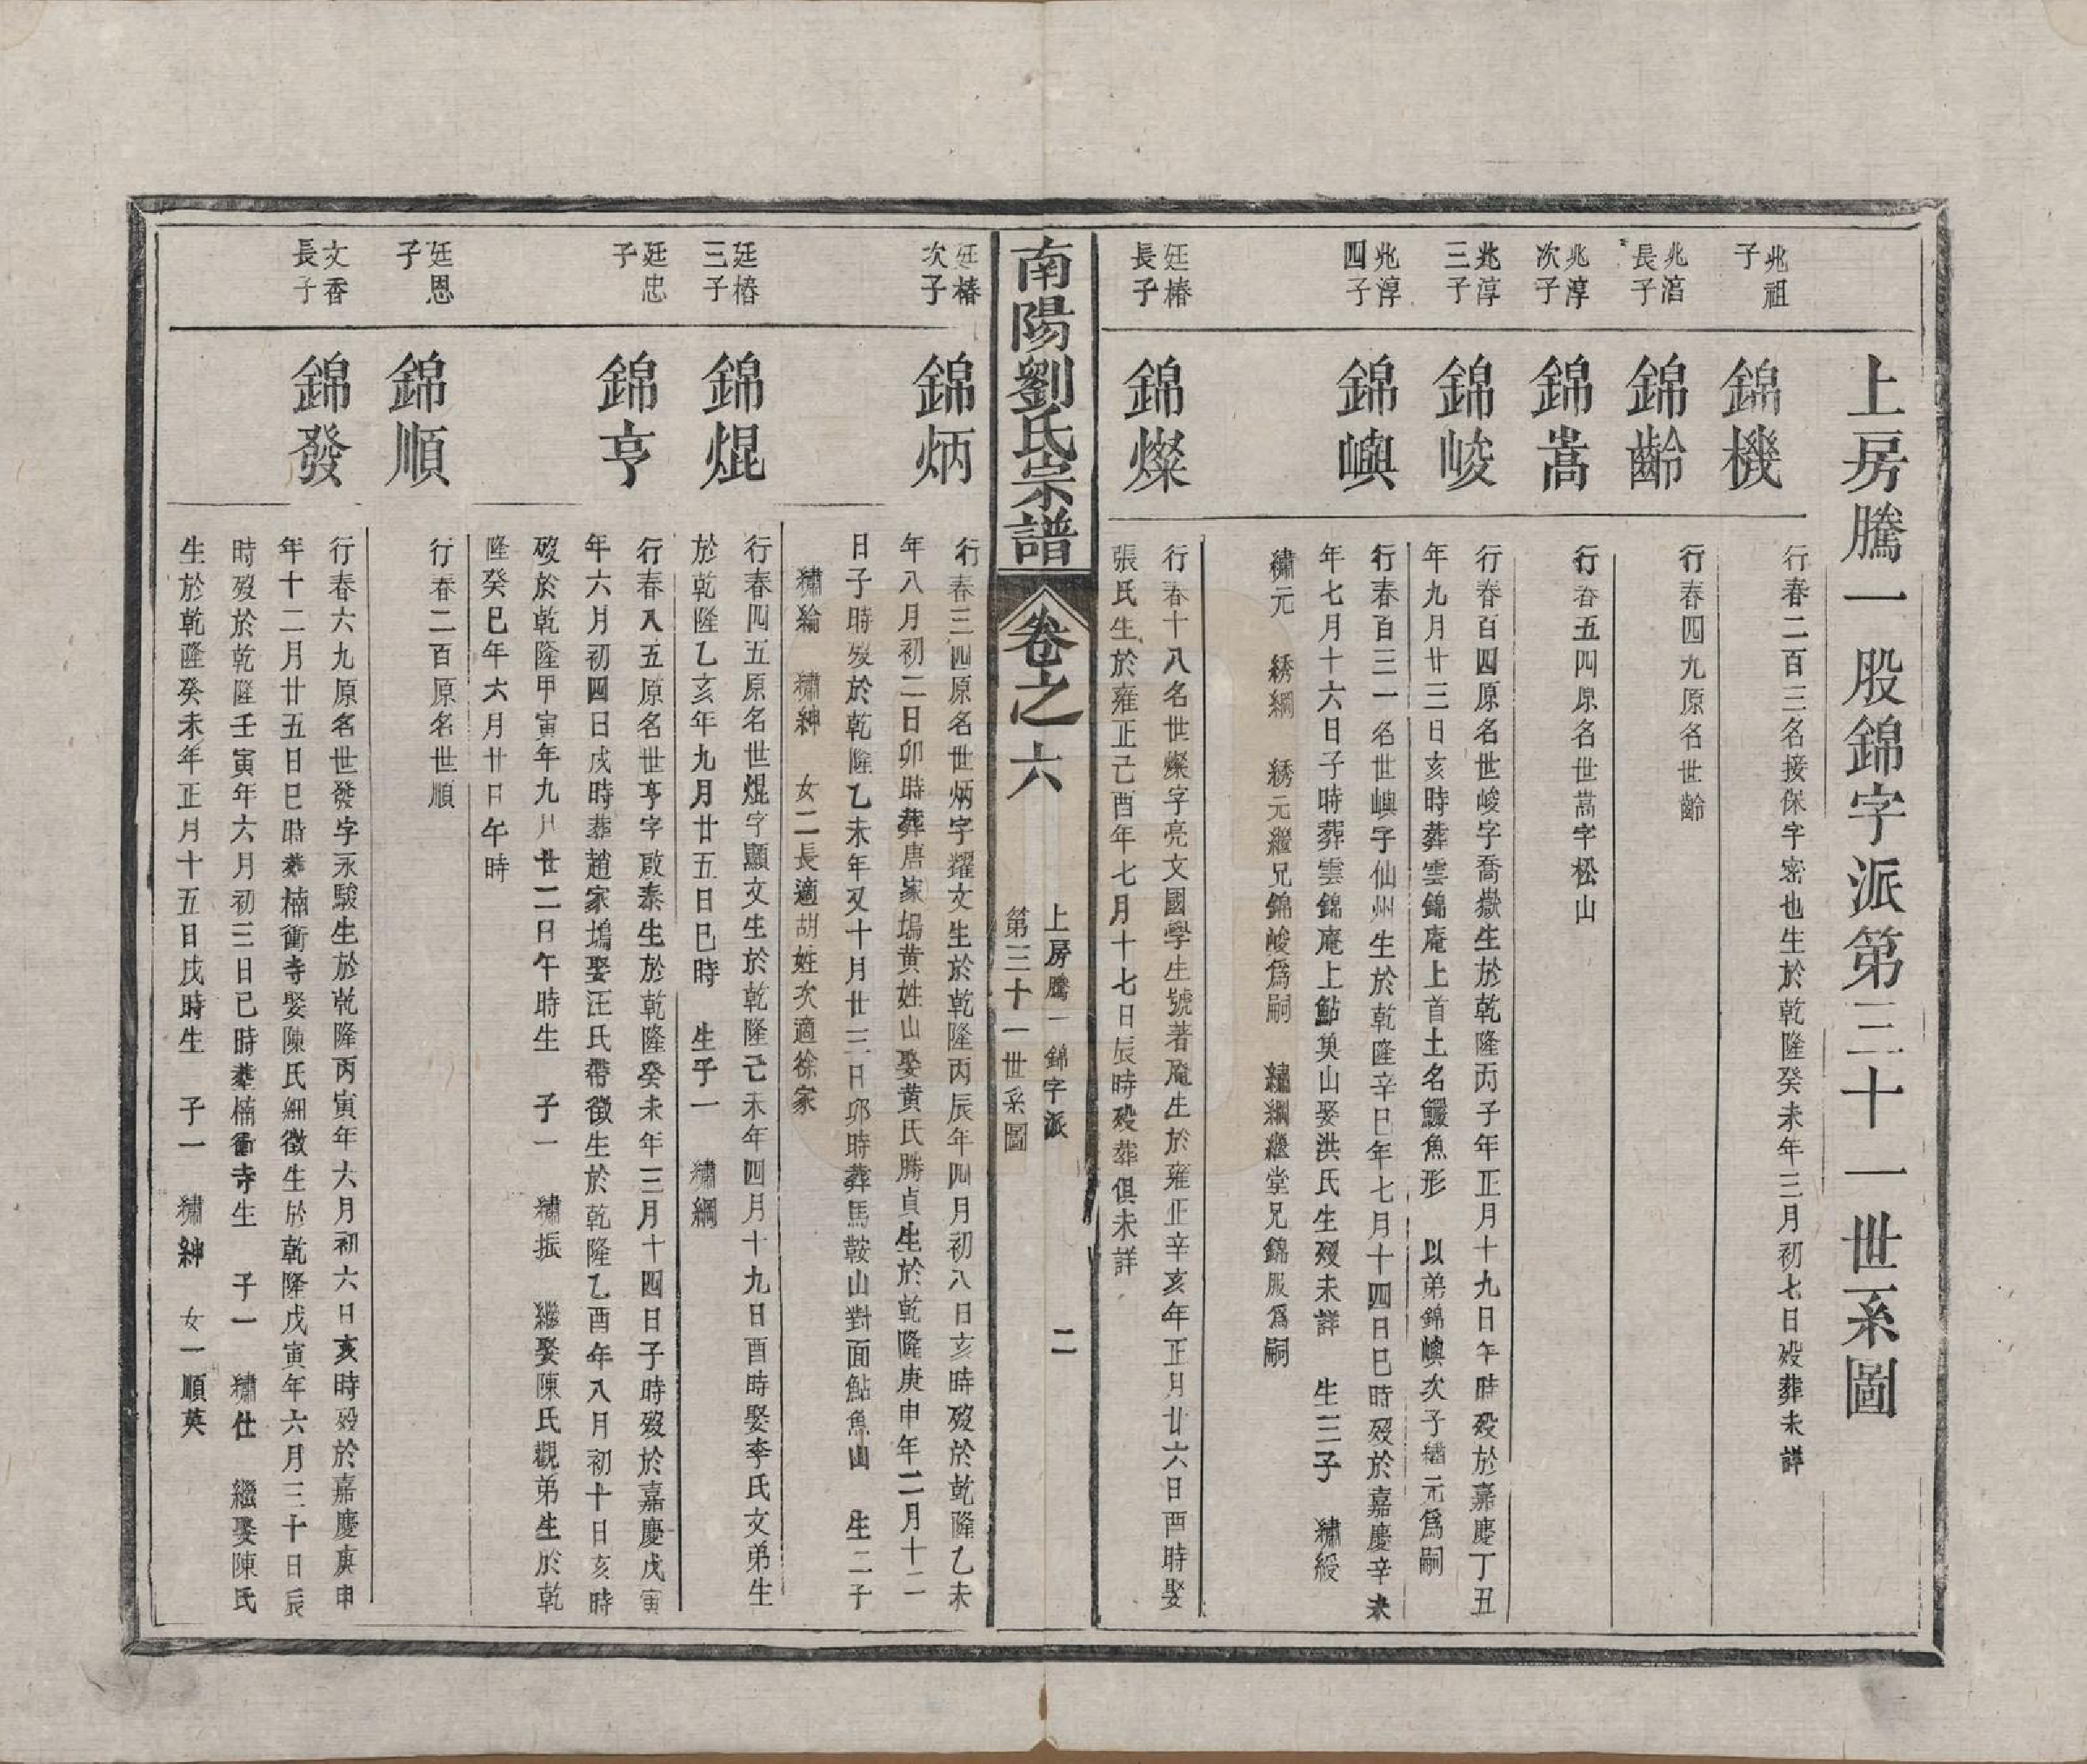 上房騰一股錦字派第三十一世系圖
兆祖
子
錦機
行春二百三名接保字密也生於乾隆癸未年三月初七日歿葬未詳
兆溍
長子
錦齡
行春四九原名世齡
兆淳
次子
錦嵩
行春五四原名世嵩字松山
兆淳
三子
錦峻
行春百四原名世峻字喬嶽生於乾隆丙子年正月十九日午時歿於嘉慶丁丑
年九月廿三日亥時葬雲錦庵上首土名鱷魚形 以弟錦嶼次子繡元爲嗣
兆淳
四子
錦嶼
行春百三一名世嶼字仙州生於乾隆辛巳年七月十四日巳時歿於嘉慶辛未
年七月十六日子時葬雲錦庵上鮎臾山娶洪氏生歿未詳 生三子 繡綬
繡元 綉綱 綉元繼兄錦峻爲嗣 繡綱繼堂兄錦服爲嗣
廷椿
長子
錦燦
行春十八名世燦字亮文國學生號著庵生於雍正辛亥年正月廿六日酉時娶
張氏生於雍正己酉年七月十七日辰時歿葬俱未詳
南陽劉氏宗譜
卷之六
上房騰一錦字派
第三十一世系圖
二
廷椿
次子
錦炳
行春三四原名世炳字耀文生於乾隆丙辰年四月初八日亥時歿於乾隆乙未
年八月初二日卯時葬唐家塢黃姓山娶黃氏勝貞生於乾隆庚申年二月十二
日子時歿於乾隆乙未年又十月廿三日卯時葬馬鞍山對面鮎魚山 生二子
繡綸 繡紳 女二長適胡姓次適徐家
廷椿
三子
錦焜
行春四五原名世焜字顯文生於乾隆己未年四月十九日酉時娶李氏文弟生
於乾隆乙亥年九月廿五日巳時 生子一 繡綱
廷忠
子
錦亨
行春八五原名世亨字啟泰生於乾隆癸未年三月十四日子時歿於嘉慶戊寅
年六月初四日戌時葬趙家塢娶汪氏帶徵生於乾隆乙酉年八月初十日亥時
歿於乾隆甲寅年九月廿二日午時生 子一 繡振 繼娶陳氏觀弟生於乾
隆癸巳年六月廿日午時
廷恩
子
錦順
行春二百原名世順
文香
長子
錦發
行春六九原名世發字永駿生於乾隆丙寅年六月初六日亥時歿於嘉慶庚申
年十二月廿五日巳時葬楠衝寺娶陳氏細徵生於乾隆戊寅年六月三十日辰
時歿於乾隆壬寅年六月初三日巳時葬楠衝寺生 子一 繡仕 繼娶陳氏
生於乾隆癸未年正月十五日戌時生 子一 繡紳 女一順英